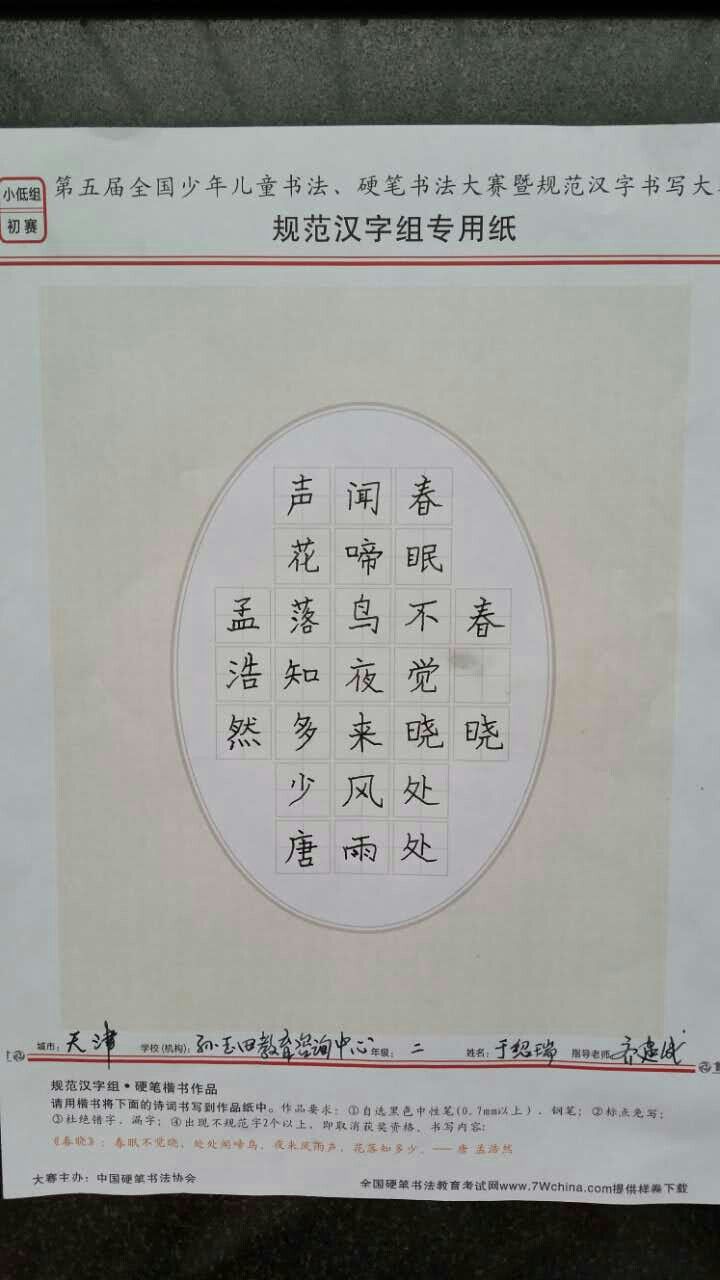 小低组
初赛
第五届全国少年儿童书法、硬笔书法大赛暨规范汉字书写大
规范汉字组专用纸
春晓
春眠不觉晓处处
闻啼鸟夜来风雨
声花落知多少唐
孟浩然
城市：天津 学校(机构)：孙玉田教育咨询中心 年级：二 姓名：于绍瑞 指导老师：
规范汉字组·硬笔楷书作品
请用楷书将下面的诗词书写到作品纸中。作品要求：①自选黑色中性笔(0.7mm以上)、钢笔；②标点免写；
③杜绝错字、漏字；④出现不规范字2个以上，即取消获奖资格。书写内容：
《春晓》：春眠不觉晓，处处闻啼鸟。夜来风雨声，花落知多少。—— 唐 孟浩然
大赛主办：中国硬笔书法协会
全国硬笔书法教育考试网www.7Wchina.com提供样卷下载